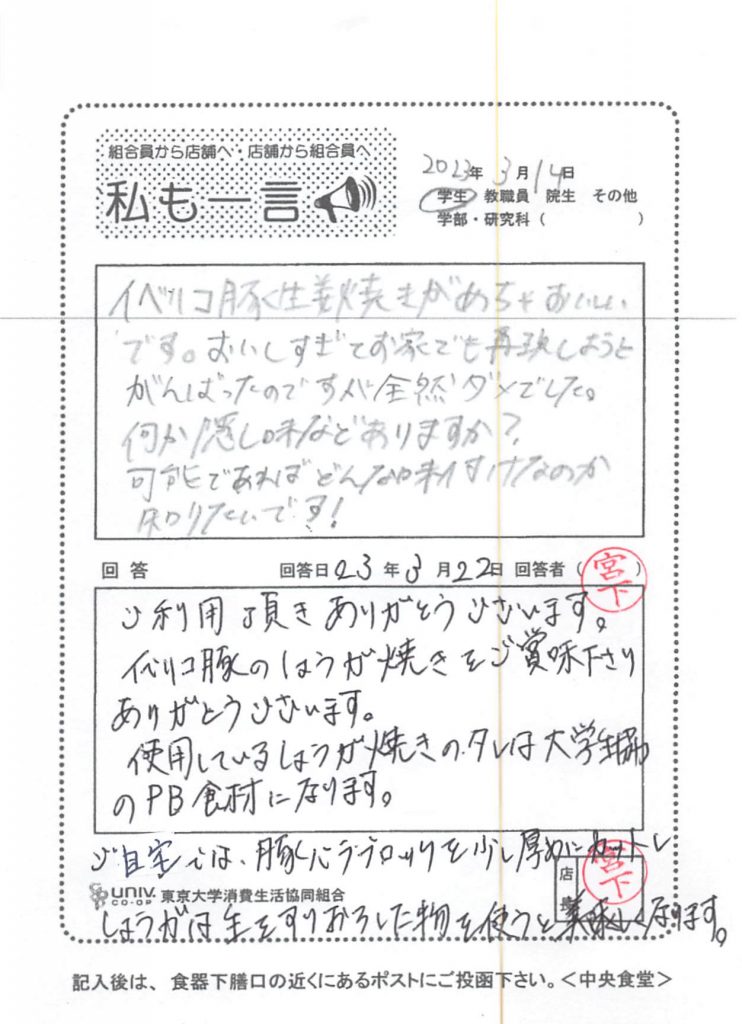 組合員から店舗へ・店舗から組合員へ
私も一言
2023年 3月 14日
学生 教職員 院生 その他
学部・研究科 ( )
イベリコ豚生姜焼きがめちゃおいしい
です。おいしすぎてお家でも再現しようと
がんばったのですが全然ダメでした。
何か隠し味などありますか?
可能であればどんな味付けなのか
知りたいです!
回答 回答日 23年 3月 22日 回答者 ( 宮下 )
ご利用頂きありがとうございます。
イベリコ豚のしょうが焼きをご賞味下さり
ありがとうございます。
使用しているしょうが焼きのタレは大学生協
のPB食材になります。
ご自宅では、豚バラブロックを少し厚めにカットし
店長 宮下
UNIV. CO-OP 東京大学消費生活協同組合
しょうがは生をすりおろした物を使うと美味しくなります。
記入後は、食器下膳口の近くにあるポストにご投函下さい。<中央食堂>